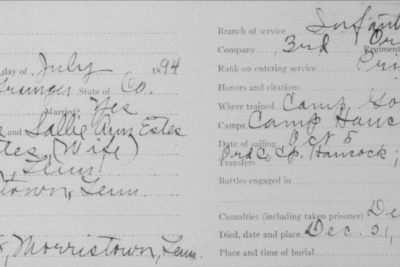 day of July 1894
Grainger State of Co.
Married? Yes
and Sallie Ann Estes
tes (Wife)
, Tenn
town, Tenn.
, Morristown, Tenn.
Branch of service Infant
Company 3rd Regiment
Rank on entering service Pri
Honors and citations
Where trained Camp Go
Camps Camp Hanc
Date of sailing Oct 5
Transfers Ord Co Cp. Hancock;
Battles engaged in
Casualties (including taken prisoner) Di
Died, date and place Dec. 31,
Place and time of burial